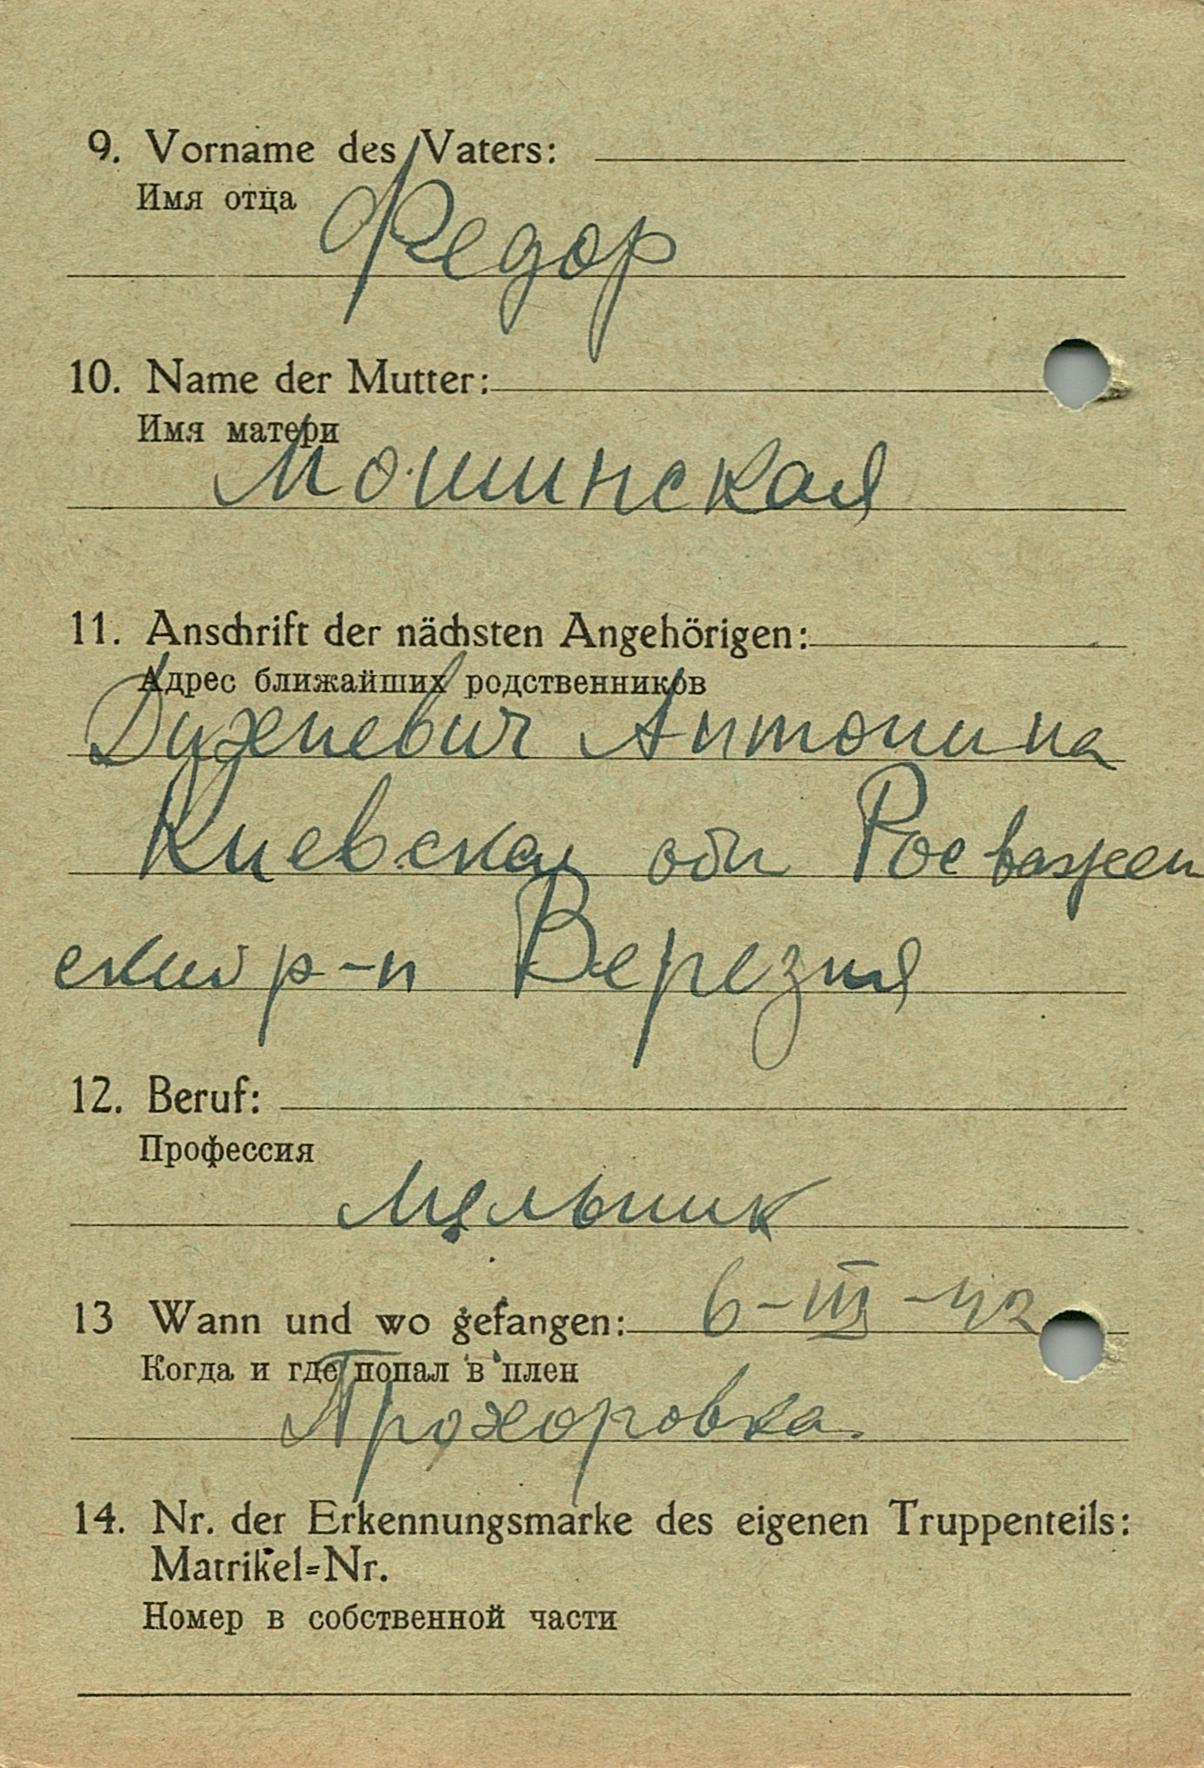 9. Vorname des Vaters:
Имя отца
Федор
10. Name der Mutter:
Имя матери
Мошинская
11. Anschrift der nächsten Angehörigen:
Адрес ближайших родственников
Антонина
Киевская обл Росважен
ский р-н Верезня
12. Beruf:
Профессия
Мельник
13 Wann und wo gefangen: 6-III-42
Когда и где попал в плен
Прохоровка.
14. Nr. der Erkennungsmarke des eigenen Truppenteils:
Matrikel=Nr.
Номер в собственной части